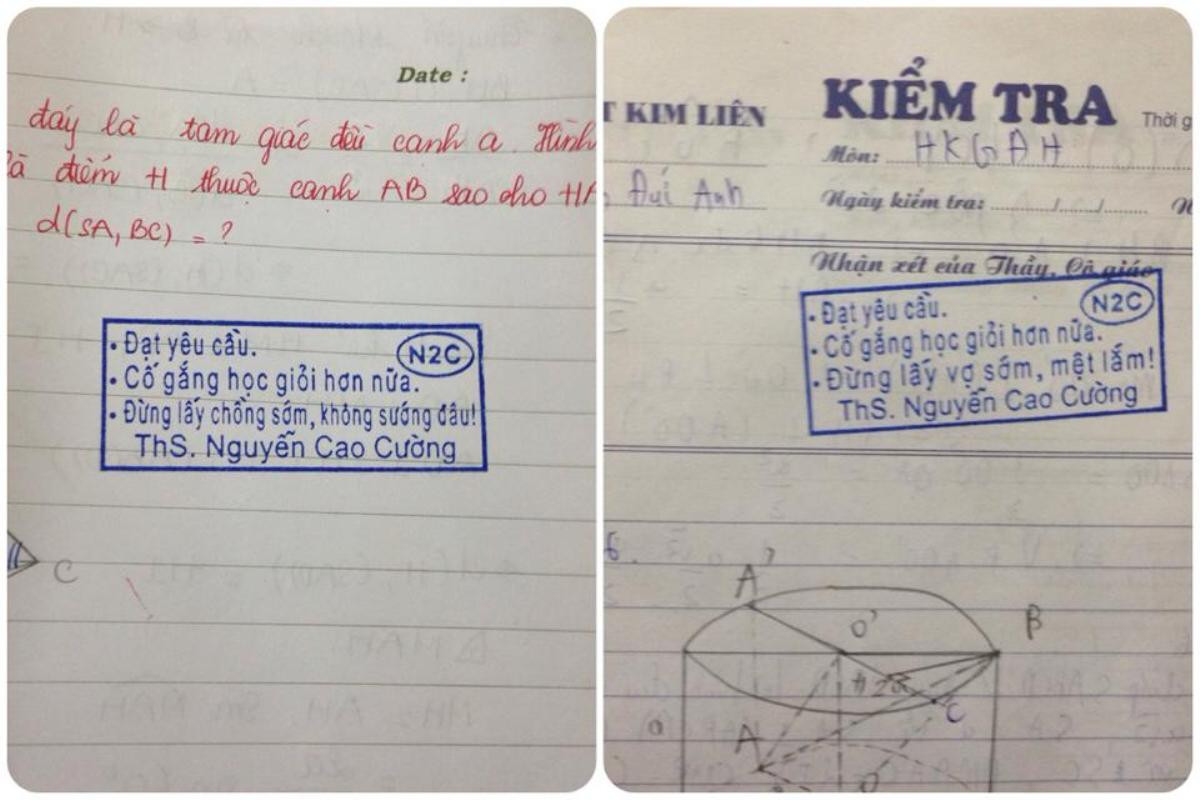 Date :
đáy là tam giác đều cạnh a. Hình
là điểm H thuộc cạnh AB sao cho HA
d(SA, BC) = ?
• Đạt yêu cầu.
N2C
• Cố gắng học giỏi hơn nữa.
• Đừng lấy chồng sớm, không sướng đâu!
ThS. Nguyễn Cao Cường
C
T KIM LIÊN
KIỂM TRA
Thời g
Môn: HKGĐH
Anh
Ngày kiểm tra: ....../....../......
N
Nhận xét của Thầy, Cô giáo
• Đạt yêu cầu.
N2C
• Cố gắng học giỏi hơn nữa.
• Đừng lấy vợ sớm, mệt lắm!
ThS. Nguyễn Cao Cường
6.
A'
O'
B
H
C
A
O